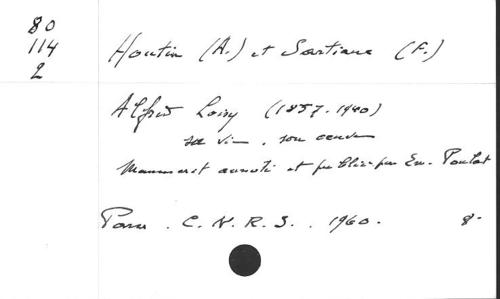 80
114
2
Houtin (A.) et Sartiaux (F.)
Alfred Loisy (1857-1940)
sa vie, son oeuvre
Manuscrit annoté et publié par Em. Poulat
Paris. C. N. R. S.. 1960. 8.